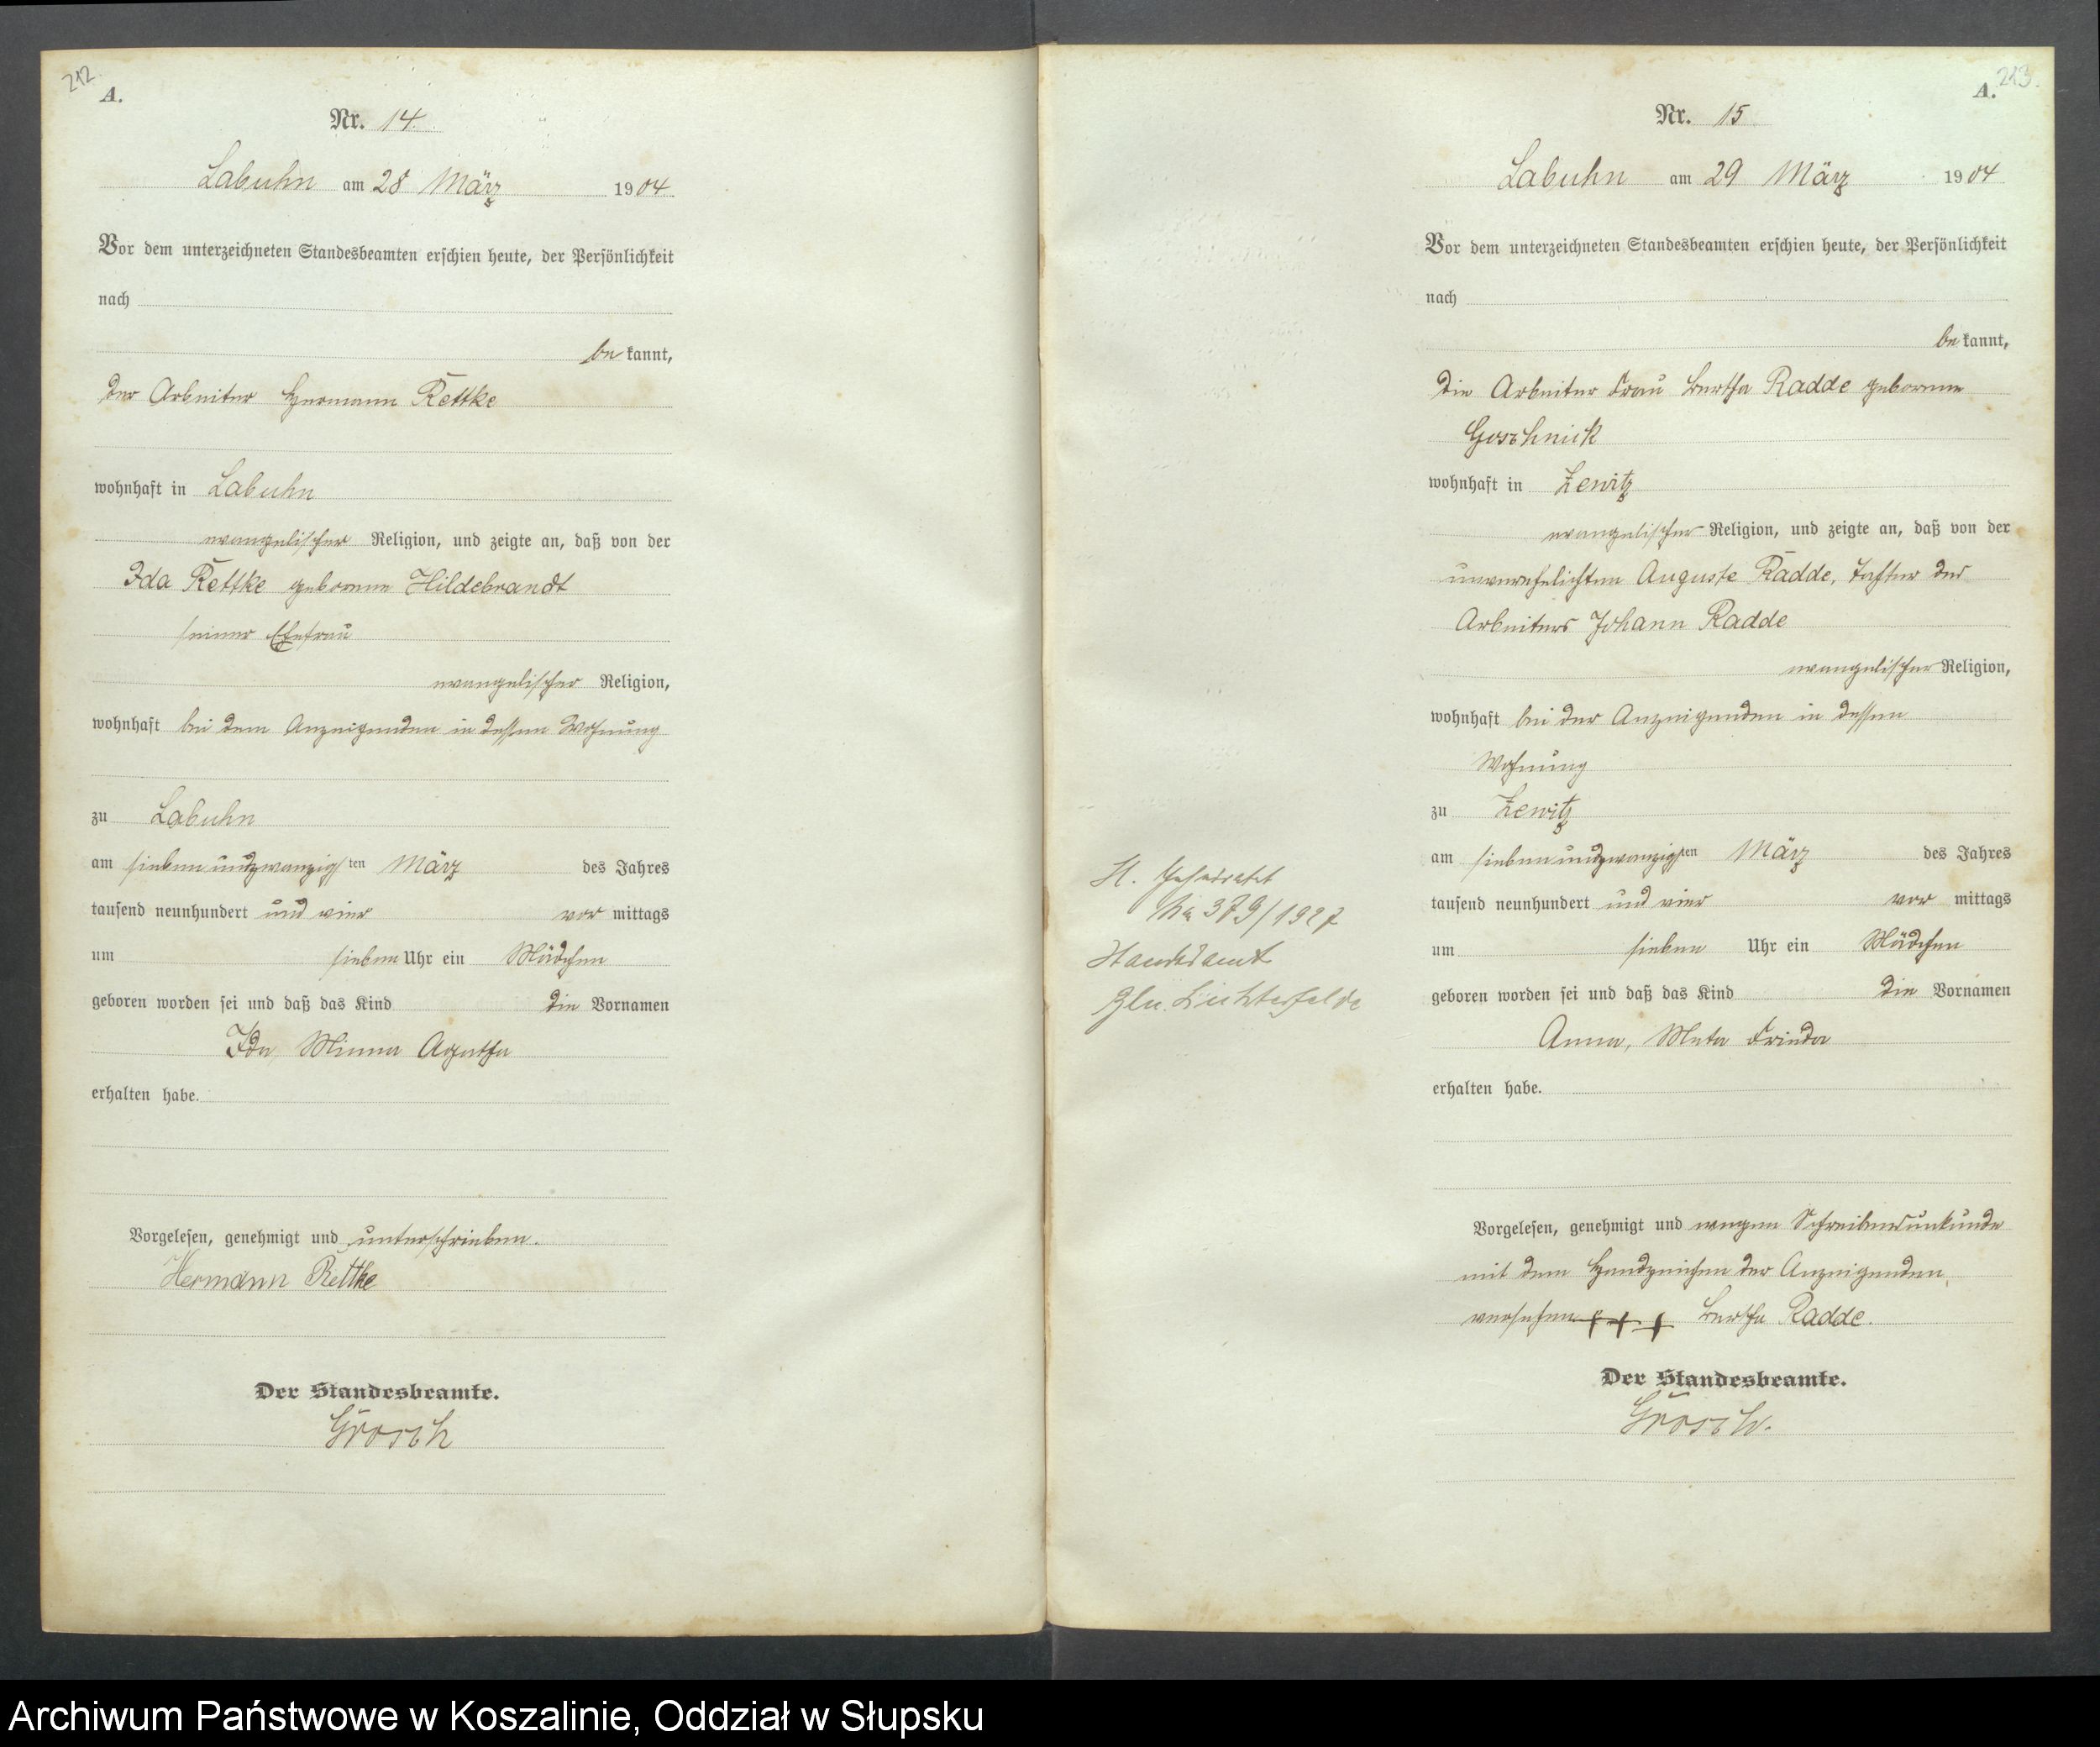 212
A.
Nr. 14.
Labuhn am 28 März 1904
Vor dem unterzeichneten Standesbeamten erschien heute, der Persönlichkeit
nach
bekannt,
der Arbeiter Hermann Rettke
wohnhaft in Labuhn
evangelischer Religion, und zeigte an, daß von der
Ida Rettke geborenen Hildebrandt
seiner Ehefrau
evangelischer Religion,
wohnhaft bei dem Anzeigenden in dessen Wohnung
zu Labuhn
am siebenundzwanzigsten März des Jahres
tausend neunhundert und vier vor mittags
um sieben Uhr ein Mädchen
geboren worden sei und daß das Kind die Vornamen
Ida, Minna Agatha
erhalten habe.
Vorgelesen, genehmigt und unterschrieben.
Hermann Rettke
Der Standesbeamte.
Grosch
213.
A.
Nr. 15
Labuhn am 29 März 1904
Vor dem unterzeichneten Standesbeamten erschien heute, der Persönlichkeit
nach
bekannt,
die Arbeiter Frau Bertha Radde geborene
Goschnick
wohnhaft in Zewitz
evangelischer Religion, und zeigte an, daß von der
unverehelichten Auguste Radde, Tochter des
Arbeiters Johann Radde
evangelischer Religion,
wohnhaft bei der Anzeigenden in dessen
Wohnung
zu Zewitz
am siebenundzwanzigsten März des Jahres
tausend neunhundert und vier vor mittags
um sieben Uhr ein Mädchen
geboren worden sei und daß das Kind die Vornamen
Anna, Meta Frieda
erhalten habe.
Vorgelesen, genehmigt und wegen Schreibensunkunde
mit dem Handzeichen der Anzeigenden,
versehen +++ Bertha Radde.
Der Standesbeamte.
Grosch.
Geheiratet
Nr 379/1927
Standesamt
Bln. Lichterfelde
Archiwum Państwowe w Koszalinie, Oddział w Słupsku